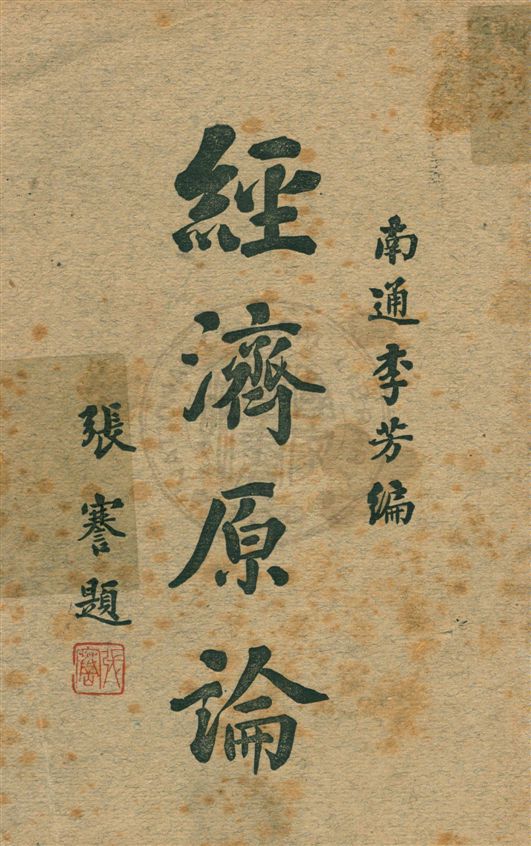 南通李芳編
經濟原論
張謇題
張謇